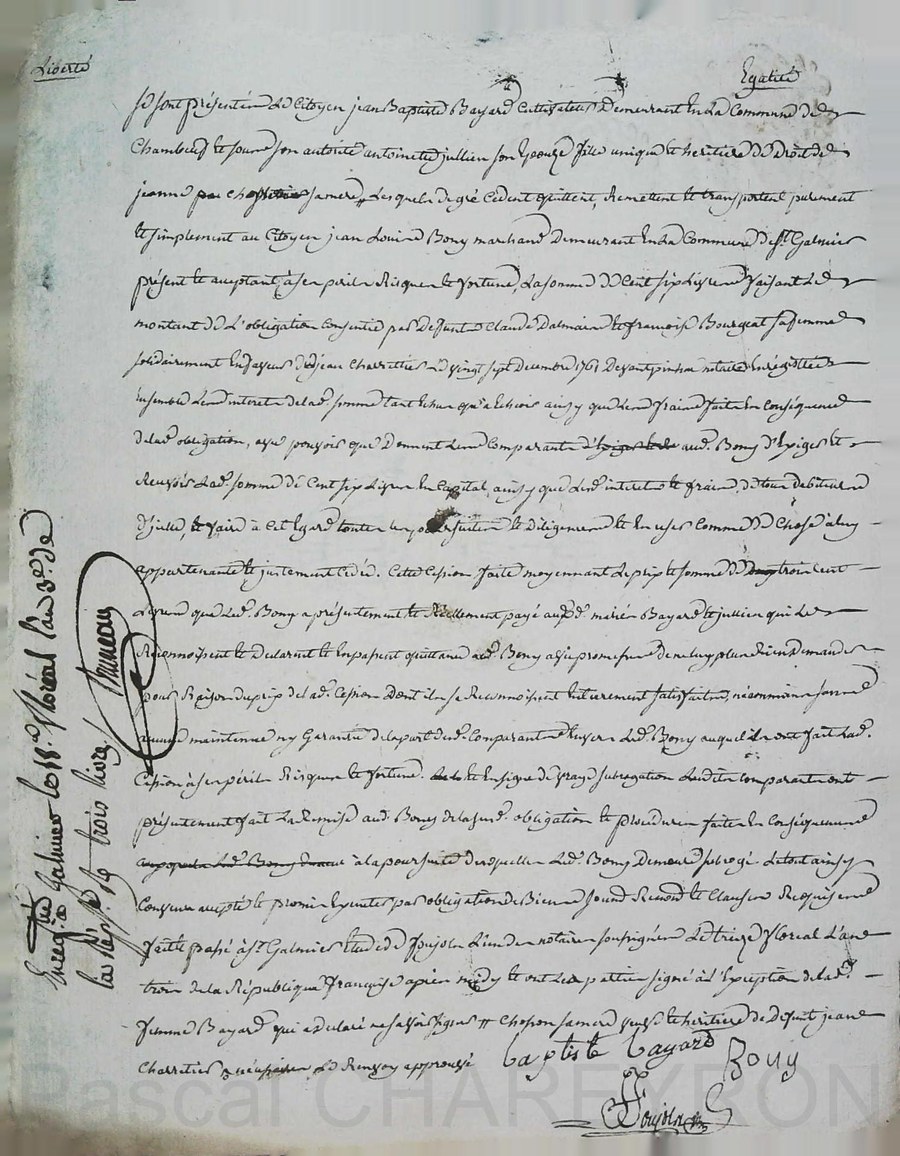 Liberté
Egalité
Se sont présentés Le Citoyen jean Baptiste Bayard Cultivateur Demeurant En La Commune de
Chambeuf Et sous son autorité antoinette jullien son Epouze fille unique Et heritiere De Droit de
jeanne sa mere, Lesquels de gré Cedent quittent, Remettent Et transportent purement
Et simplement au Citoyen jean Louis Bony marchand Demeurant En La Commune de St Galmier
présent Et acceptant à ses perils Risques Et fortune, La somme De Cent six Livres faisant Le
montant De L'obligation Consentie par Defunts Claude Dalmais Et françoise Bourgeat sa femme
solidairement En faveur de jean Charretier Le vingt sept Decembre 1761 Devant notaire Enregistrée
Ensemble Les interets de lad. somme tant Echus qu'a Echoir ainsy que Les fraix faits En Conséquence
de lad. obligation, avec pouvoir que Donnent Les Comparants aud. Bony D'Exiger Et
Recevoir Lad. somme de Cent six Livres En Capital, ainsy que Les. interets Et fraix, de tous debiteurs
D'icelle, Et faire à Cet Egard toutes les poursuittes Et Diligences Et En user Comme De Chose à luy
appartenante Et justement Cédée. Cette Cession faite moyennant Le prix Et somme De trois Cent
Livres que Led. Bony a présentement Et Réellement payé auxd. mariés Bayard Et jullien qui Le
Reconnoissent Et Declarent Et En passent quittance aud. Bony avec promesse de ne luy plus Rien Demander
pour Raison du prix de lad. Cession Dont ils se Reconnoissent Entierement satisfaits, néanmoins sans
aucune maintenue ny Garantie de la part desd. Comparants Envers Led. Bony auquel ils ont fait Lad.
Cession à ses périls Risques Et fortune. Et En signe de vraye subrogation Lesdits Comparants ont
présentement fait La Remise aud. Bony de la susd. obligation Et procédures faites En Conséquence
à la poursuite desquelles Led. Bony Demeure subrogé. Le tout ainsy
Convenu accepté Et promis Executer par obligation de Biens Et Clauses Requises
fait Et passé à St Galmier Etude de Poujola L'un des notaires soussignés Le treize floreal L'an
trois de La République française après midy Et ont Les parties signé à L'Exception de lad.
femme Bayard qui a declaré ne savoir signer # Chopon sa mere veuve Et heritiere de Defunt jean
Charretier Le Renvoy approuvé
baptiste bayard
Bony
Poujola
Enreg.tré à Galmier Le 18. floréal L'an 3e. de
la Rép. R trois Livres